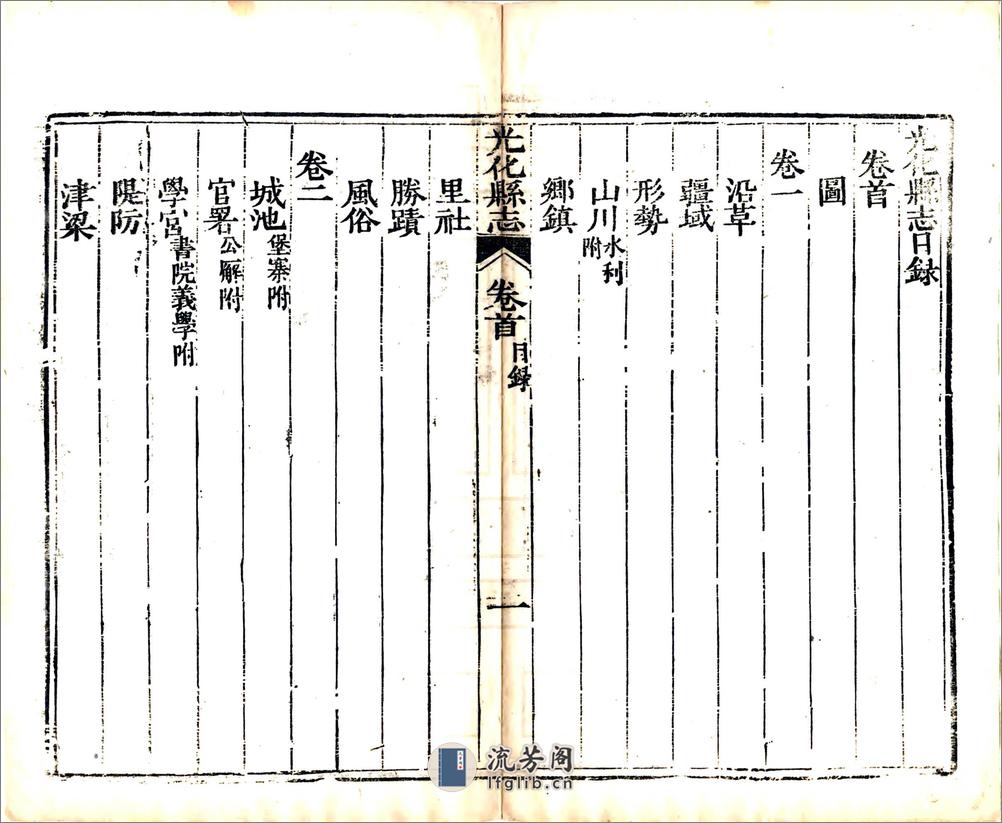 光化縣志目録
卷首
圖
卷一
沿革
疆域
形勢
山川水利附
鄉鎮
光化縣志 卷首 目録 一
里社
勝蹟
風俗
卷二
城池堡寨附
官署公廨附
學宮書院義學附
隄防
津梁
流芳阁
lfglib.cn